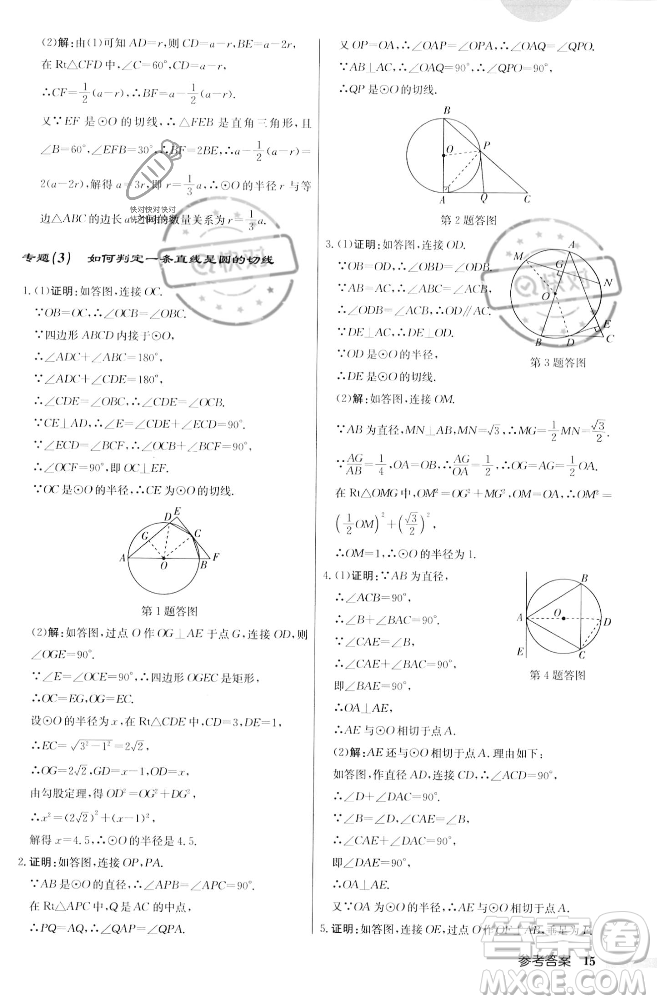 (2)解:由(1)可知 AD=r,则 CD=a-r,BD=a-2r.
在 Rt△CFD 中,∵∠C=60°,∠CFD=90°,
∴CF=1/2(a-r),∴BF=1/2(a-r).
又∵EF 是⊙O 的切线,∴△FEB 是直角三角形,且
∠B=60°,∠EFB=30°,∴BE=1/2BF,∴a-1/2(a-r)=
2(a-2r),解得 a=3r,即 r=1/3a,∴⊙O 的半径 r 与等
边△ABC 的边长 a 之间的数量关系为 r=1/3a.
快对快对快对
快对快对快对
专题(3) 如何判定一条直线是圆的切线
1.(1)证明:如答图,连接 OC.
∵OB=OC,∴∠OBC=∠OCB.
∵四边形 ABCD 内接于⊙O,
∴∠ADC+∠ABC=180°.
又∵∠ADC+∠CDE=180°,
∴∠CDE=∠OBC,∴∠CDE=∠OCB.
∵CE⊥AD,∴∠E=∠CDE+∠ECD=90°.
∵∠ECD=∠BCF,∴∠OCB+∠BCF=90°,
∴∠OCE=90°,即 OC⊥EF.
∵OC 是⊙O 的半径,∴CE 为⊙O 的切线.
D E
G C
A O B F
第 1 题答图
(2)解:如答图,过点 O 作 OG⊥AE 于点 G,连接 OD,则
∠OGE=90°.
∵∠E=∠OCE=90°,∴四边形 OGEC 是矩形,
∴OC=EG,OG=EC.
设⊙O 的半径为 x,在 Rt△CDE 中,CD=3,DE=1,
∴EC=√(3²-1²)=2√2,
∴OG=2√2,GD=x-1,OD=x.
由勾股定理,得 OD²=OG²+DG²,
∴x²=(2√2)²+(x-1)²,
解得 x=4.5,∴⊙O 的半径是 4.5.
2.证明:如答图,连接 OP,PA.
∵AB 是⊙O 的直径,∴∠APB=∠APC=90°.
∵在 Rt△APC 中,Q 是 AC 的中点,
∴PQ=AQ,∴∠QAP=∠QPA.
又∵OP=OA,∴∠OAP=∠OPA,∴∠OAQ=∠QPO.
∵AB⊥AC,∴∠OAQ=90°,∴∠QPO=90°,
∴QP 是⊙O 的切线.
B
O P
A Q C
第 2 题答图
3.(1)证明:如答图,连接 OD.
∵OB=OD,∴∠B=∠ODB.
∵AB=AC,∴∠B=∠ACB,
∴∠ODB=∠ACB,∴OD∥AC.
∵DE⊥AC,∴OD⊥DE.
∵OD 是⊙O 的半径,
∴DE 是⊙O 的切线.
M A G N
O
E
B D C
第 3 题答图
(2)解:如答图,连接 OM.
∵AB 为直径,MN⊥AB,MN=√3,∴MG=1/2MN=√3/2.
∵AG/AB=1/4,AB=2AO,∴AG/OA=1/2,∴OG=1/2OA.
在 Rt△OMG 中,OM²=OG²+MG²,∴OM²=
(1/2OM)²+(√3/2)²,
∴OM=1,∴⊙O 的半径为 1.
4.(1)证明:∵AB 为直径,
∴∠ACB=90°,
∴∠B+∠BAC=90°.
∵∠CAE=∠B,
∴∠CAE+∠BAC=90°,
即∠BAE=90°,
∴OA⊥AE,
∴AE 与⊙O 相切于点 A.
B
A O D
E C
第 4 题答图
(2)解:AE 还与⊙O 相切于点 A.理由如下:
如答图,作直径 AD,连接 DC,则∠ACD=90°,
∴∠D+∠DAC=90°.
∵∠B=∠D,∴∠B+∠DAC=90°.
∵∠CAE=∠B,
∴∠CAE+∠DAC=90°,
即∠DAE=90°,∴OA⊥AE.
又∵OA 为⊙O 的半径,∴AE 与⊙O 相切于点 A.
5.证明:如答图,连接 OE,过点 O 作 OF⊥AB,垂足为 F,
参考答案 15